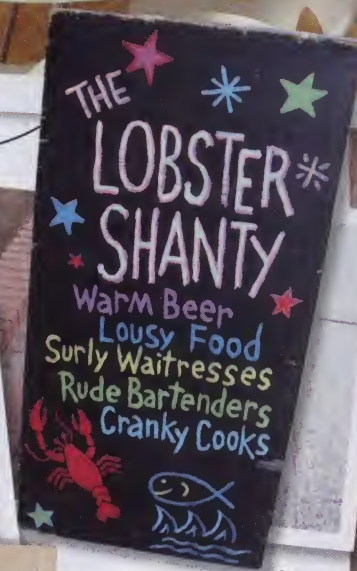 THE
LOBSTER
SHANTY
Warm Beer
Lousy Food
Surly Waitresses
Rude Bartenders
Cranky Cooks